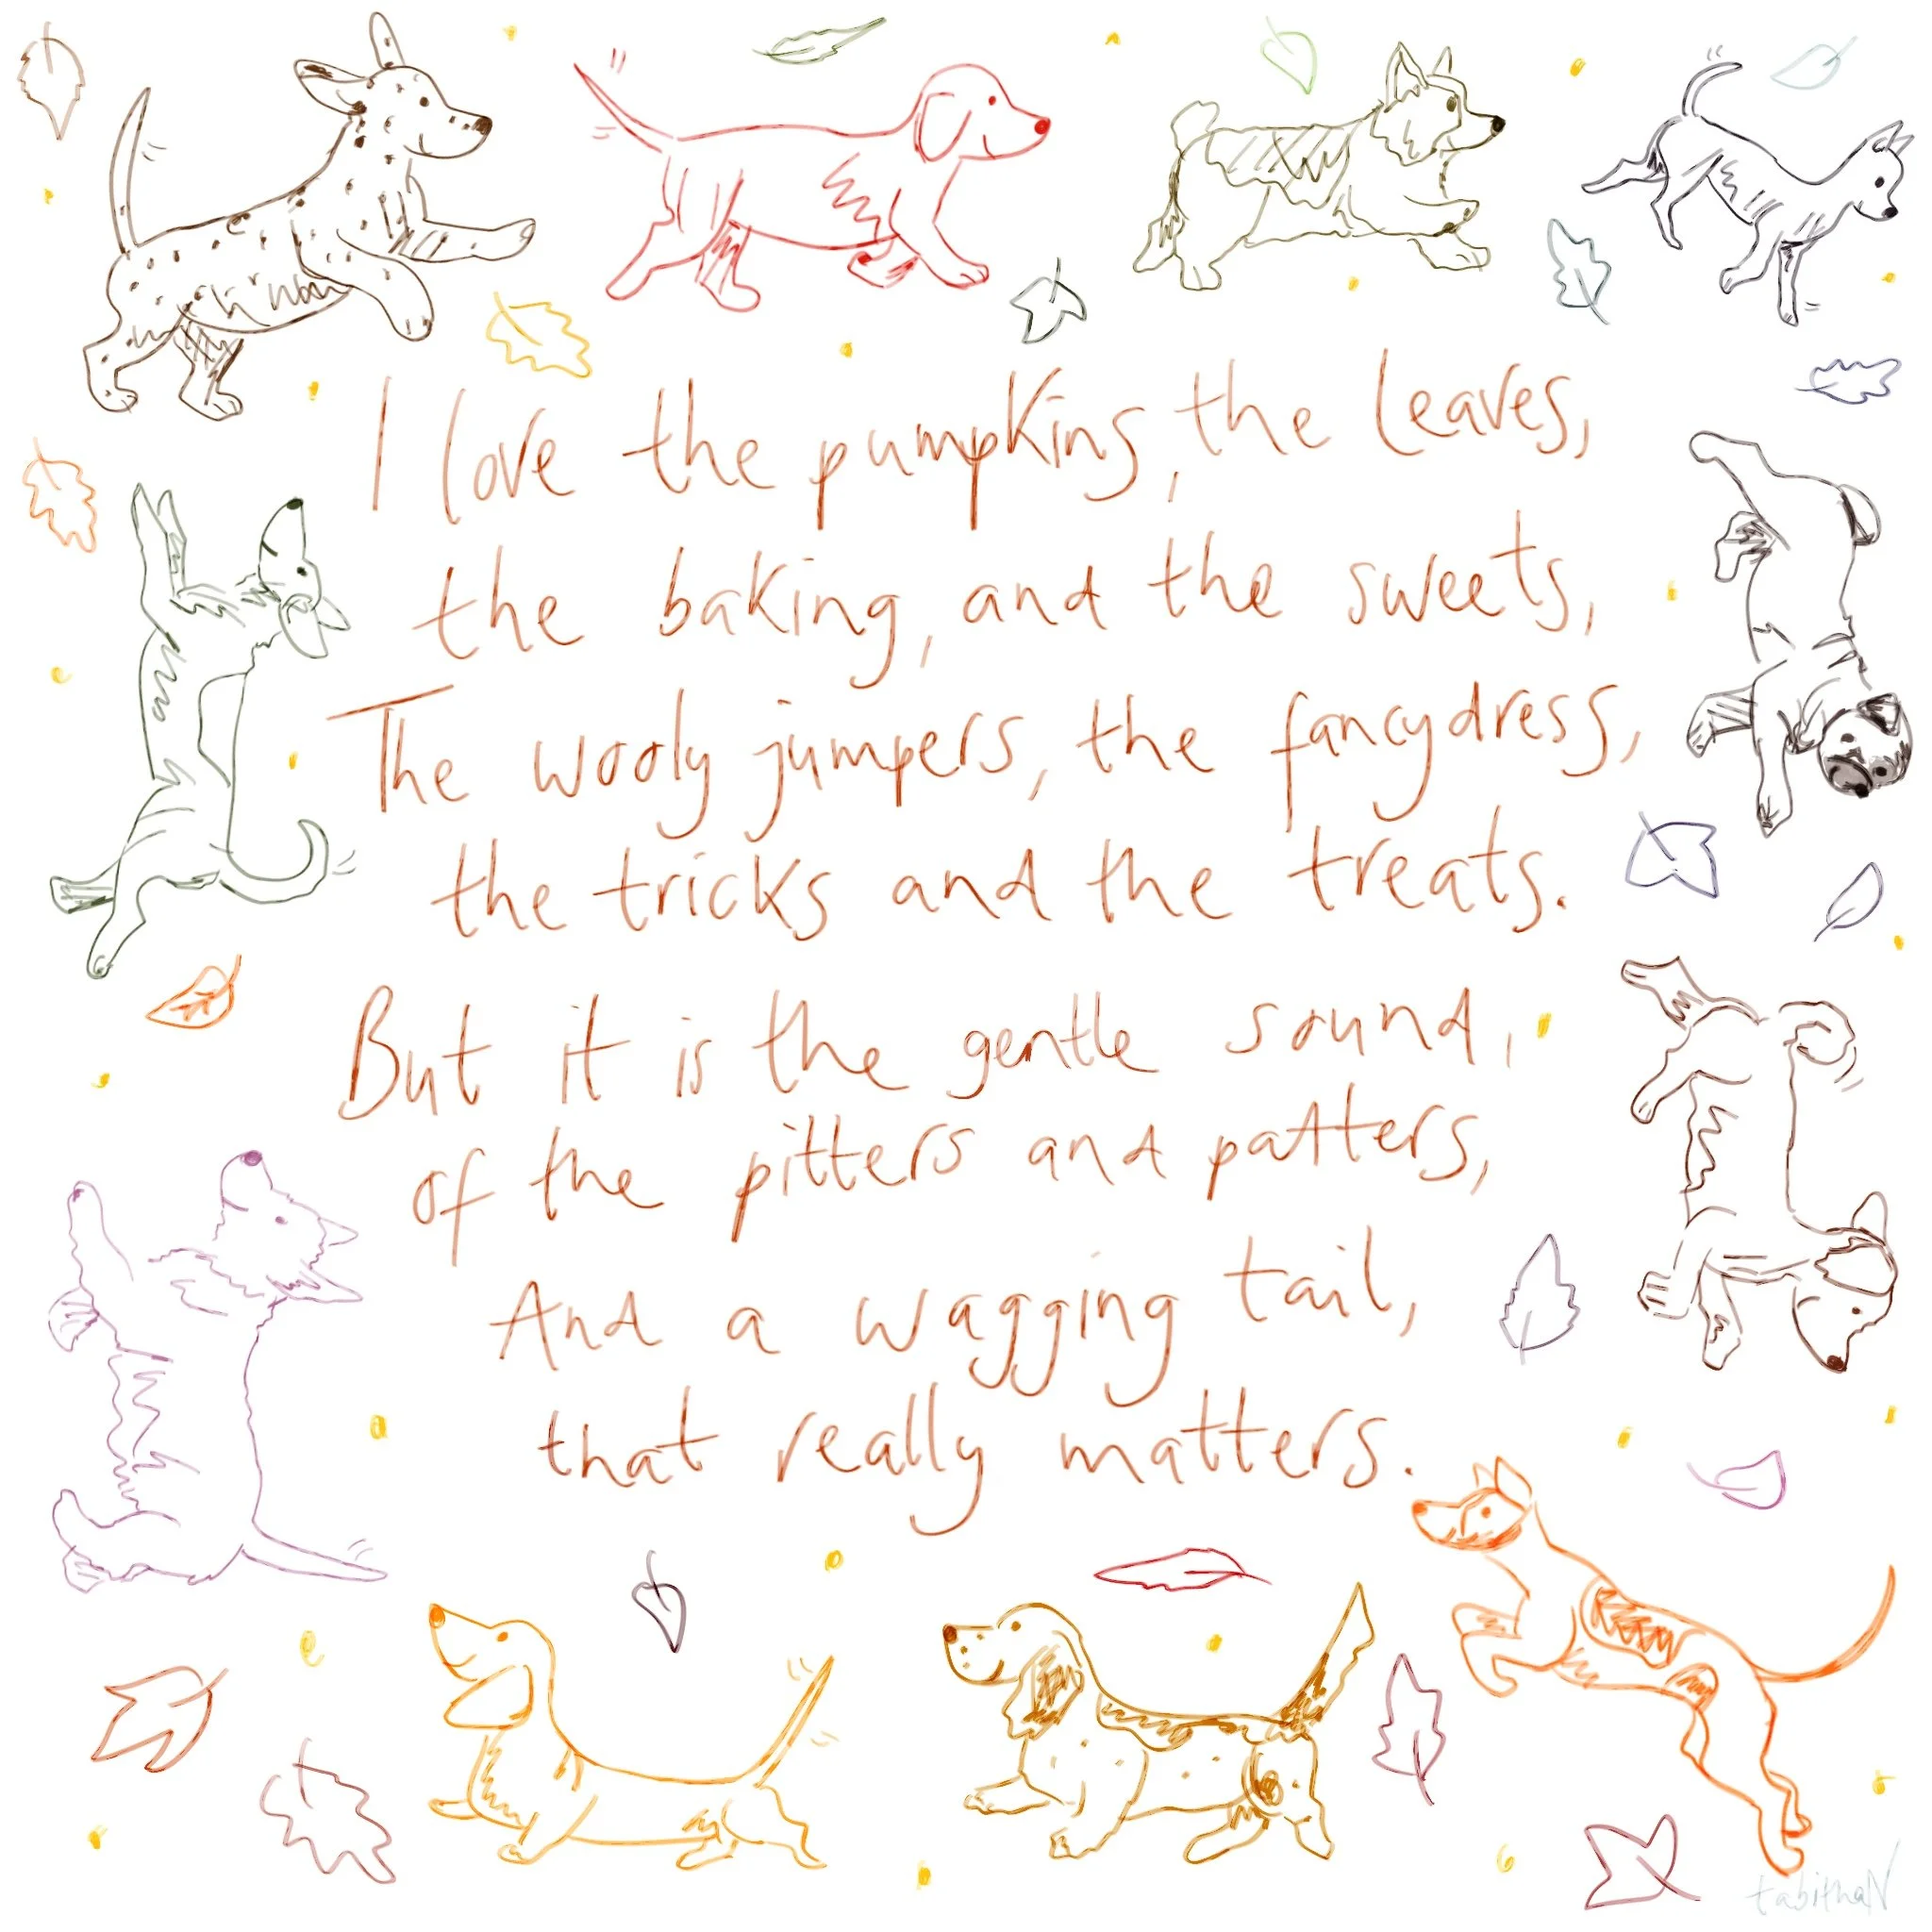 I love the pumpkins, the leaves,
the baking, and the sweets,
The wooly jumpers, the fancydress,
the tricks and the treats.
But it is the gentle sound,
of the pitters and patters,
And a wagging tail,
that really matters.
tabithaN